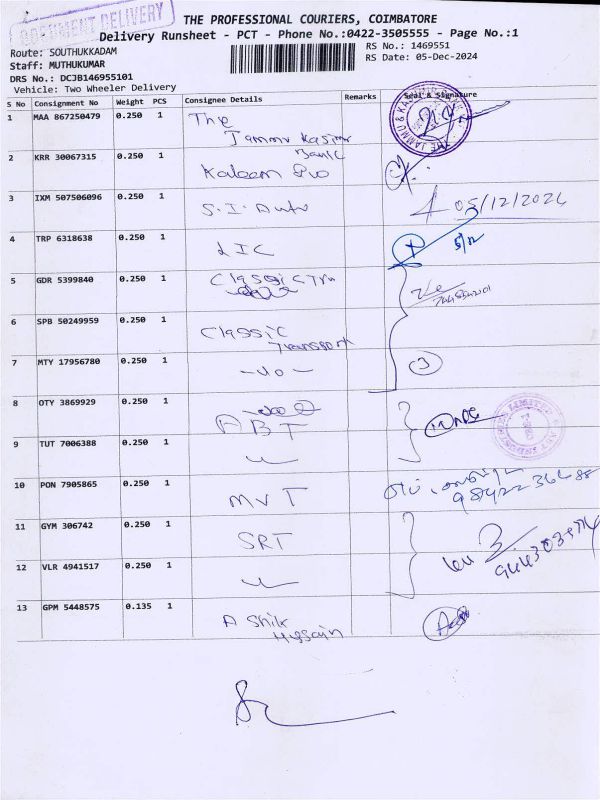 DOCUMENT DELIVERY
THE PROFESSIONAL COURIERS, COIMBATORE
Delivery Runsheet - PCT - Phone No.:0422-3505555 - Page No.:1
Route: SOUTHUKKADAM
RS No.: 1469551
Staff: MUTHUKUMAR
RS Date: 05-Dec-2024
DRS No.: DCJB146955101
Vehicle: Two Wheeler Delivery
S No Consignment No Weight PCS Consignee Details Remarks Seal & Signature
1 MAA 867250479 0.250 1 The
Jammu Kasimr
Bank
2 KRR 30067315 0.250 1 Kaleem Bio
3 IXM 507506096 0.250 1 S.I. Auto 05/12/2024
4 TRP 6318638 0.250 1 LIC 5/12
5 GDR 5399840 0.250 1 Classic Tru
6 SPB 50249959 0.250 1 Classic
Transport
7 MTY 17956780 0.250 1 -do- 3
8 OTY 3869929 0.250 1 ABT
9 TUT 7006388 0.250 1
10 PON 7905865 0.250 1 MVT
11 GYM 306742 0.250 1 SRT
12 VLR 4941517 0.250 1
13 GPM 5448575 0.135 1 A Shik
Hussain